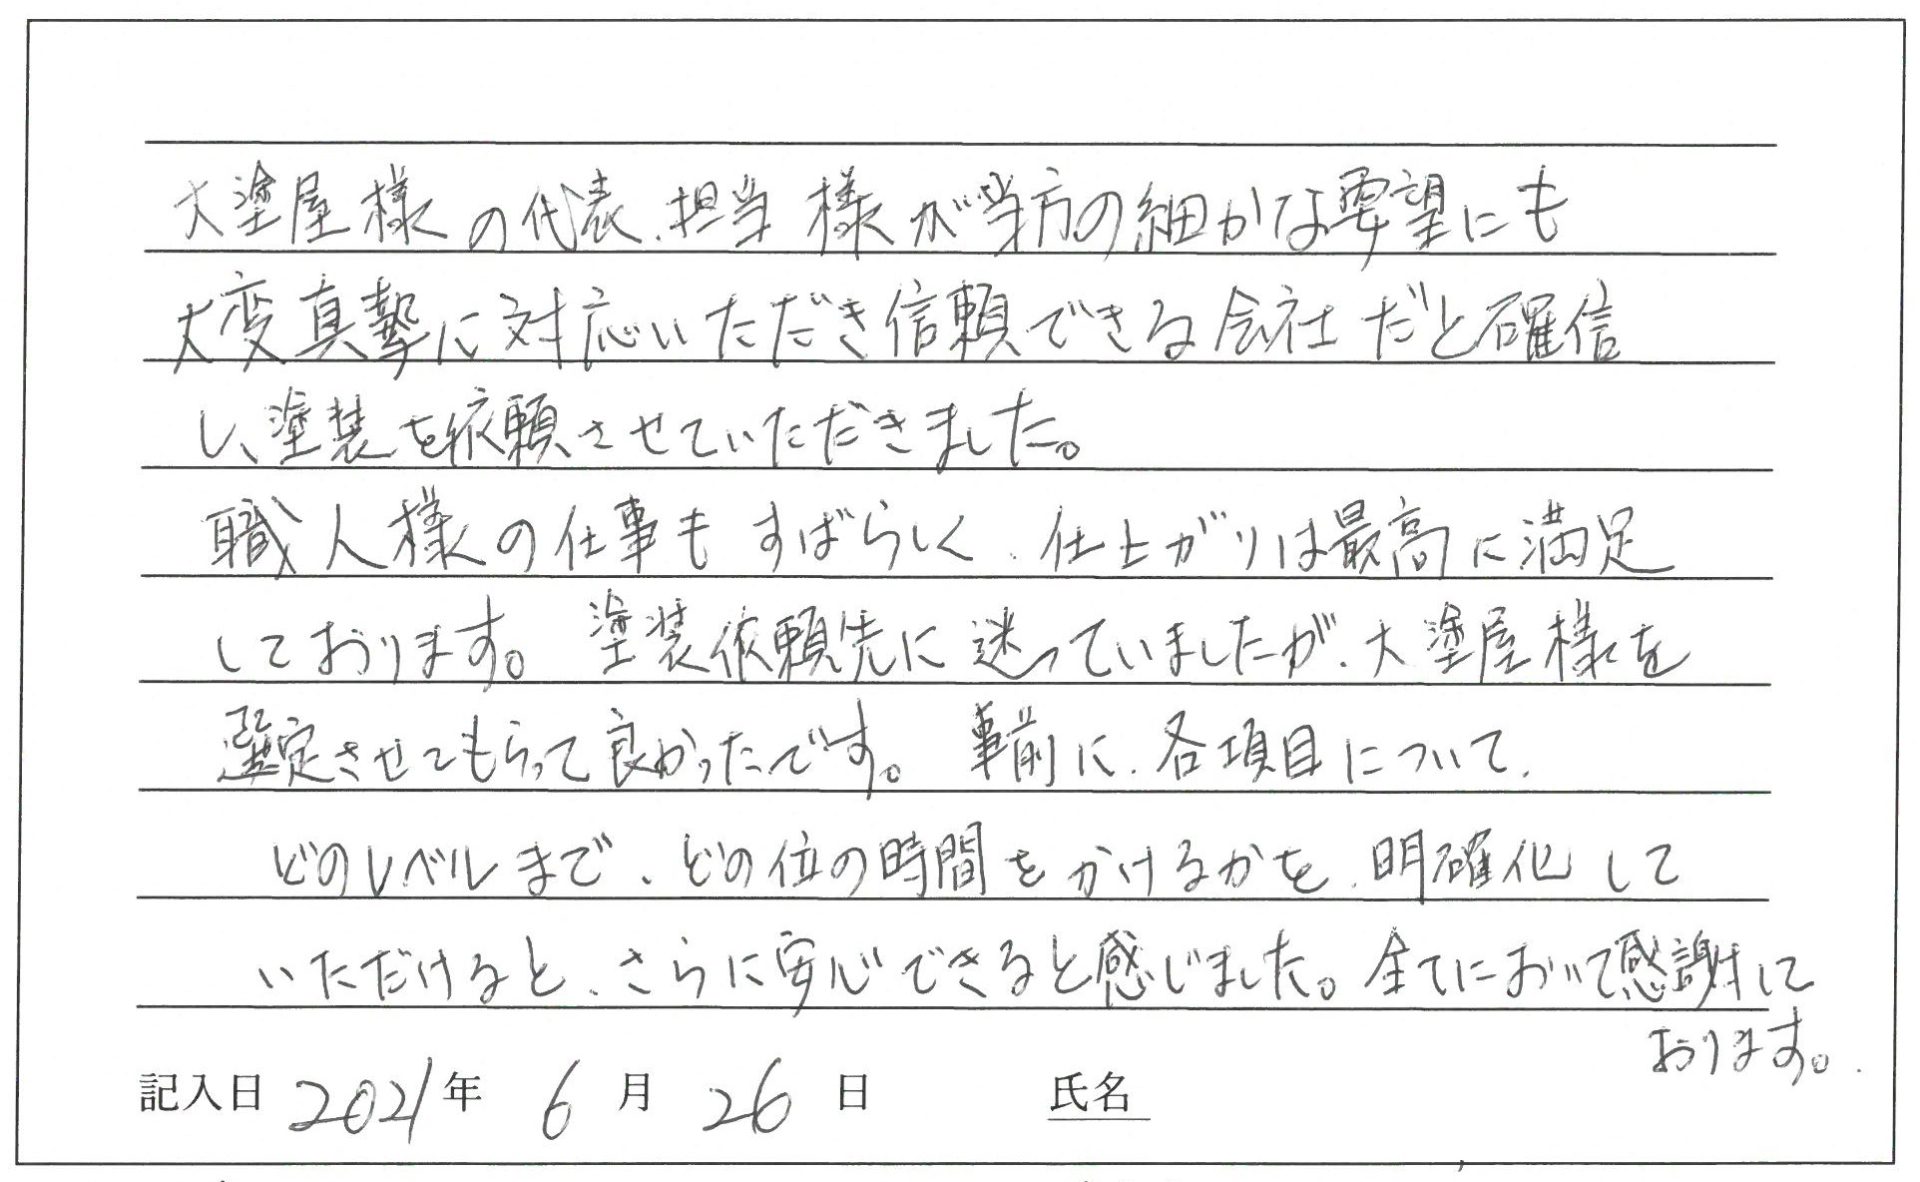 大塗屋様の代表、担当様が当方の細かな要望にも
大変真摯に対応いただき信頼できる会社だと確信
し、塗装を依頼させていただきました。
職人様の仕事もすばらしく、仕上がりは最高に満足
しております。塗装依頼先に迷っていましたが、大塗屋様を
選定させてもらって良かったです。事前に、各項目について、
どのレベルまで、どの位の時間をかけるかを、明確化して
いただけると、さらに安心できると感じました。全てにおいて感謝して
おります。
記入日 2021年 6月 26日 氏名